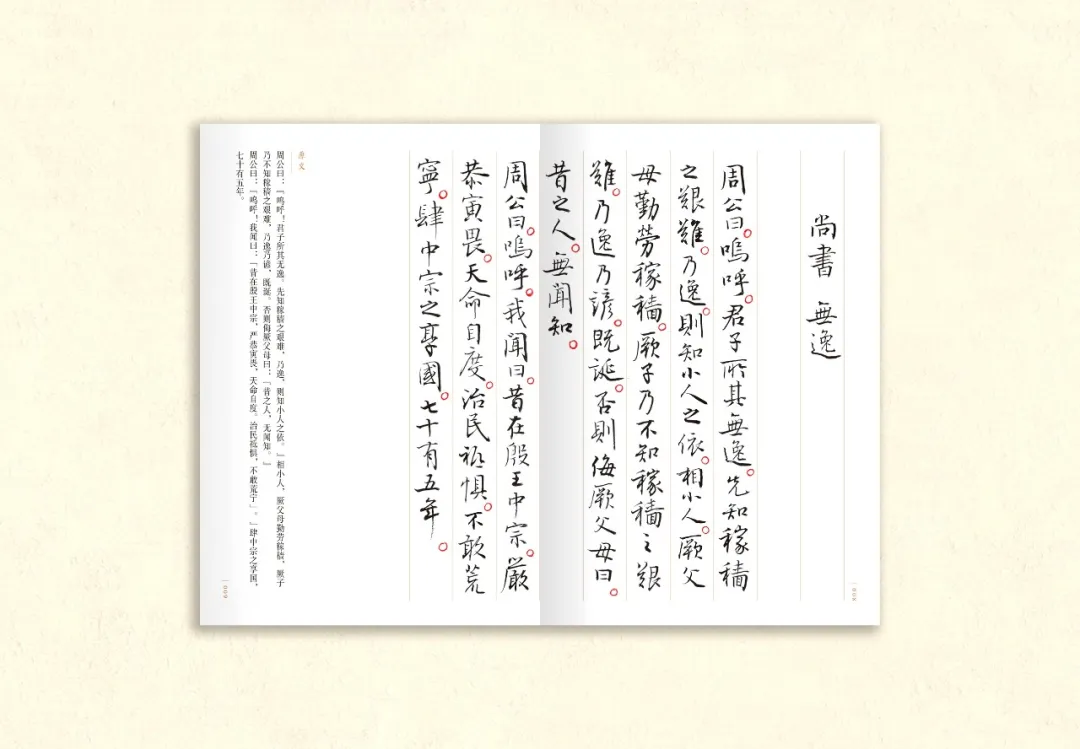 尚書 無逸
周公曰。嗚呼。君子所其無逸。先知稼穡
之艱難。乃逸。則知小人之依。相小人。厥父
母勤勞稼穡。厥子乃不知稼穡之艱
難。乃逸乃諺。既誕。否則侮厥父母曰。
昔之人。無聞知。
008
周公曰。嗚呼。我聞曰。昔在殷王中宗。嚴
恭寅畏。天命自度。治民祗懼。不敢荒
寧。肆中宗之享國。七十有五年。
原文
周公曰:「呜呼!君子所其无逸。先知稼穑之艰难,乃逸,则知小人之依。」相小人,厥父母勤劳稼穑,厥子
乃不知稼穑之艰难,乃逸乃谚,既诞。否则侮厥父母曰:「昔之人,无闻知。」
周公曰:「呜呼!我闻曰:「昔在殷王中宗,严恭寅畏,天命自度。治民祗惧,不敢荒宁」。」肆中宗之享国,
七十有五年。
009